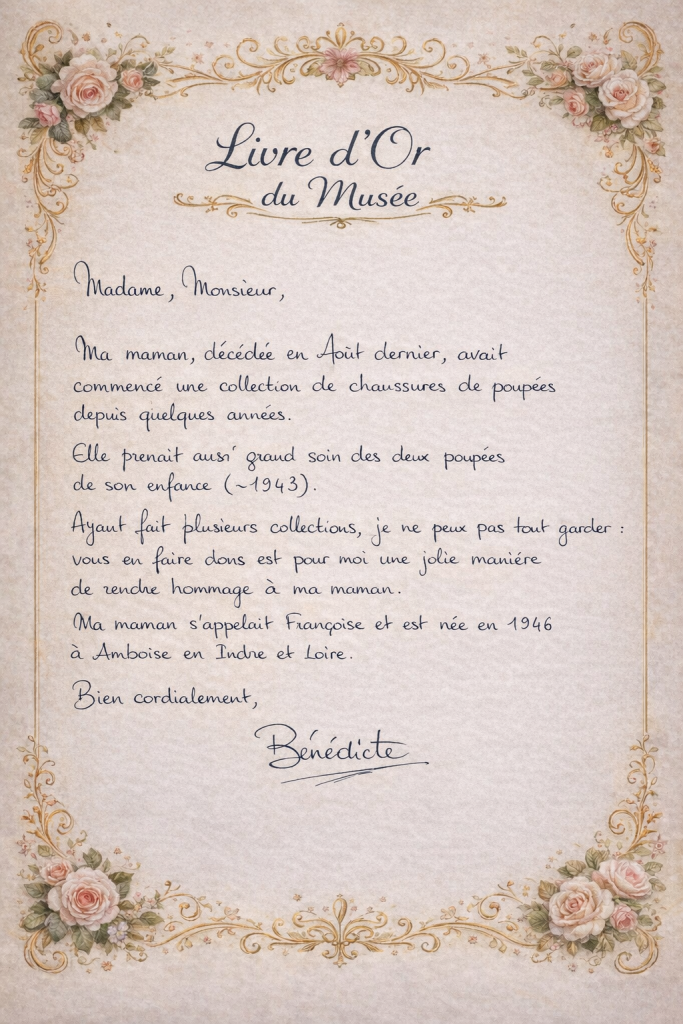 Livre d'Or
du Musée
Madame, Monsieur,
Ma maman, décédée en Août dernier, avait
commencé une collection de chaussures de poupées
depuis quelques années.
Elle prenait aussi grand soin des deux poupées
de son enfance (~1943).
Ayant fait plusieurs collections, je ne peux pas tout garder :
vous en faire dons est pour moi une jolie maniére
de rendre hommage à ma maman.
Ma maman s'appelait Françoise et est née en 1946
à Amboise en Indre et Loire.
Bien cordialement,
Bénédicte